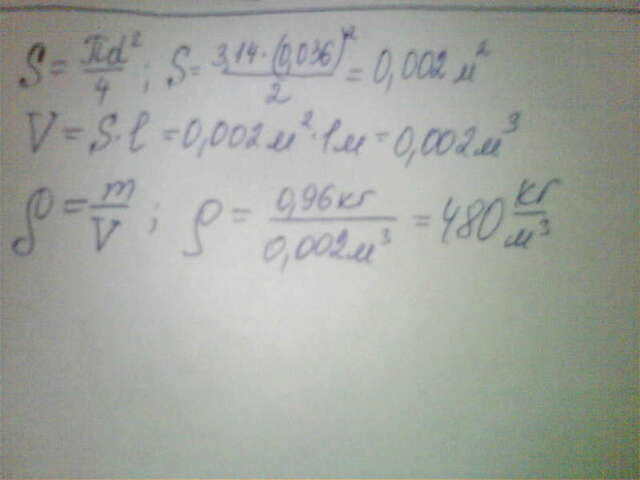 S = πd²/4 ; S = 3,14·(0,036)²/2 = 0,002 м²
V = S·l = 0,002 м²·1м = 0,002 м³
ρ = m/V ; ρ = 0,96 кг/0,002 м³ = 480 кг/м³